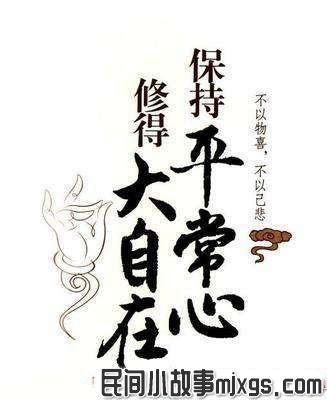 不以物喜，不以己悲
保持
平常心
修得
大自在
民间小故事mjxgs.com